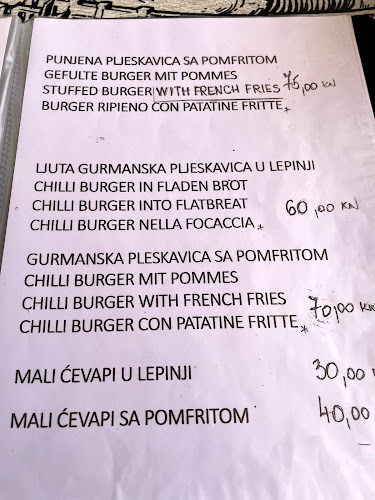 PUNJENA PLJESKAVICA SA POMFRITOM
GEFULTE BURGER MIT POMMES
STUFFED BURGER WITH FRENCH FRIES 75,00 KN
BURGER RIPIENO CON PATATINE FRITTE *
LJUTA GURMANSKA PLJESKAVICA U LEPINJI
CHILLI BURGER IN FLADEN BROT
CHILLI BURGER INTO FLATBREAT 60,00 KN
CHILLI BURGER NELLA FOCACCIA *
GURMANSKA PLESKAVICA SA POMFRITOM
CHILLI BURGER MIT POMMES
CHILLI BURGER WITH FRENCH FRIES 70,00 KN
CHILLI BURGER CON PATATINE FRITTE *
MALI ĆEVAPI U LEPINJI 30,00
MALI ĆEVAPI SA POMFRITOM 40,00